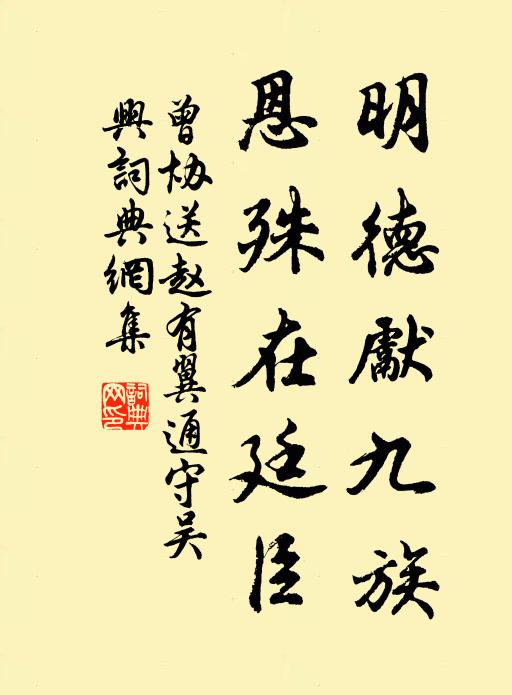 明德獻九族
恩殊在廷臣
曾協送赵有翼通守吴
興詞典網集
詞典网印